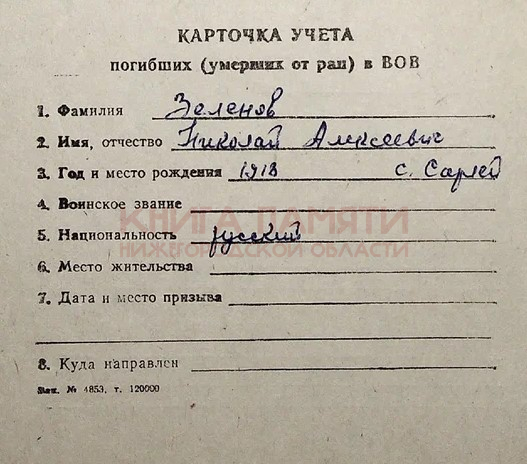 КАРТОЧКА УЧЕТА
погибших (умерших от ран) в ВОВ
1. Фамилия Зеленов
2. Имя, отчество Николай Алексеевич
3. Год и место рождения 1918 с. Сарлей
4. Воинское звание
КНИГА ПАМЯТИ
5. Национальность русский
НИЖЕГОРОДСКОЙ ОБЛАСТИ
6. Место жительства
7. Дата и место призыва
8. Куда направлен
Зак. № 4853, т. 120000